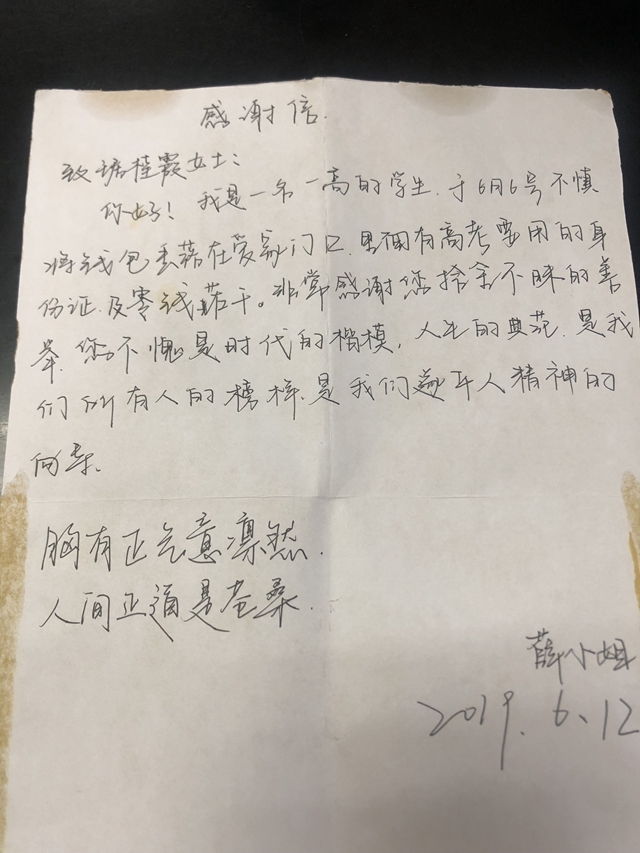 感谢信.
致诸桂霞女士:
你好! 我是一名一高的学生. 于6月6号不慎
将钱包丢落在爱家门口. 里面有高考要用的身
份证.及零钱若干。非常感谢您拾金不昧的善
举. 您不愧是时代的楷模, 人生的典范. 是我
们所有人的榜样.是我们逐年人精神的
向导.
胸有正气意凛然.
人间正道是苍桑.
薛小姐
2019.6.12